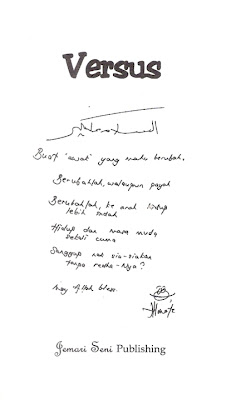 Versus
السلام عليكم
Buat "awat" yang mahu berubah,
Berubahlah, walaupun payah
Berubahlah, ke arah hidup
lebih indah
Hidup dan masa muda
sekali cuma
Sanggup nak sia-siakan
tanpa redha-Nya?
May Allah bless.
Jemari Seni Publishing